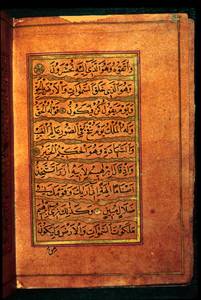 واتقوه وهو الذي اليه تحشرون
وهو الذي خلق السموات والارض
بالحق ويوم يقول كن فيكون قوله الحق
وله الملك يوم ينفخ في الصور عالم الغيب
والشهادة وهو الحكيم الخبير
واذ قال ابرهيم لابيه ازر اتتخذ
اصناما الهة اني اريك وقومك في
ضلال مبين وكذلك نري ابرهيم
ملكوت السموات والارض وليكون